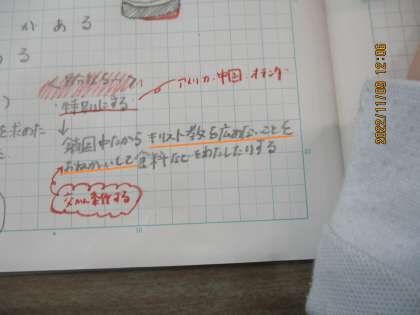 がある
る
アメリカ・中国・オランダ
特別にする
を求めた
↓
鎖国中だから キリスト教を広めないことを
おねがいして 食料などをわたしたりする
交かん条件する
2022/11/09 12:06